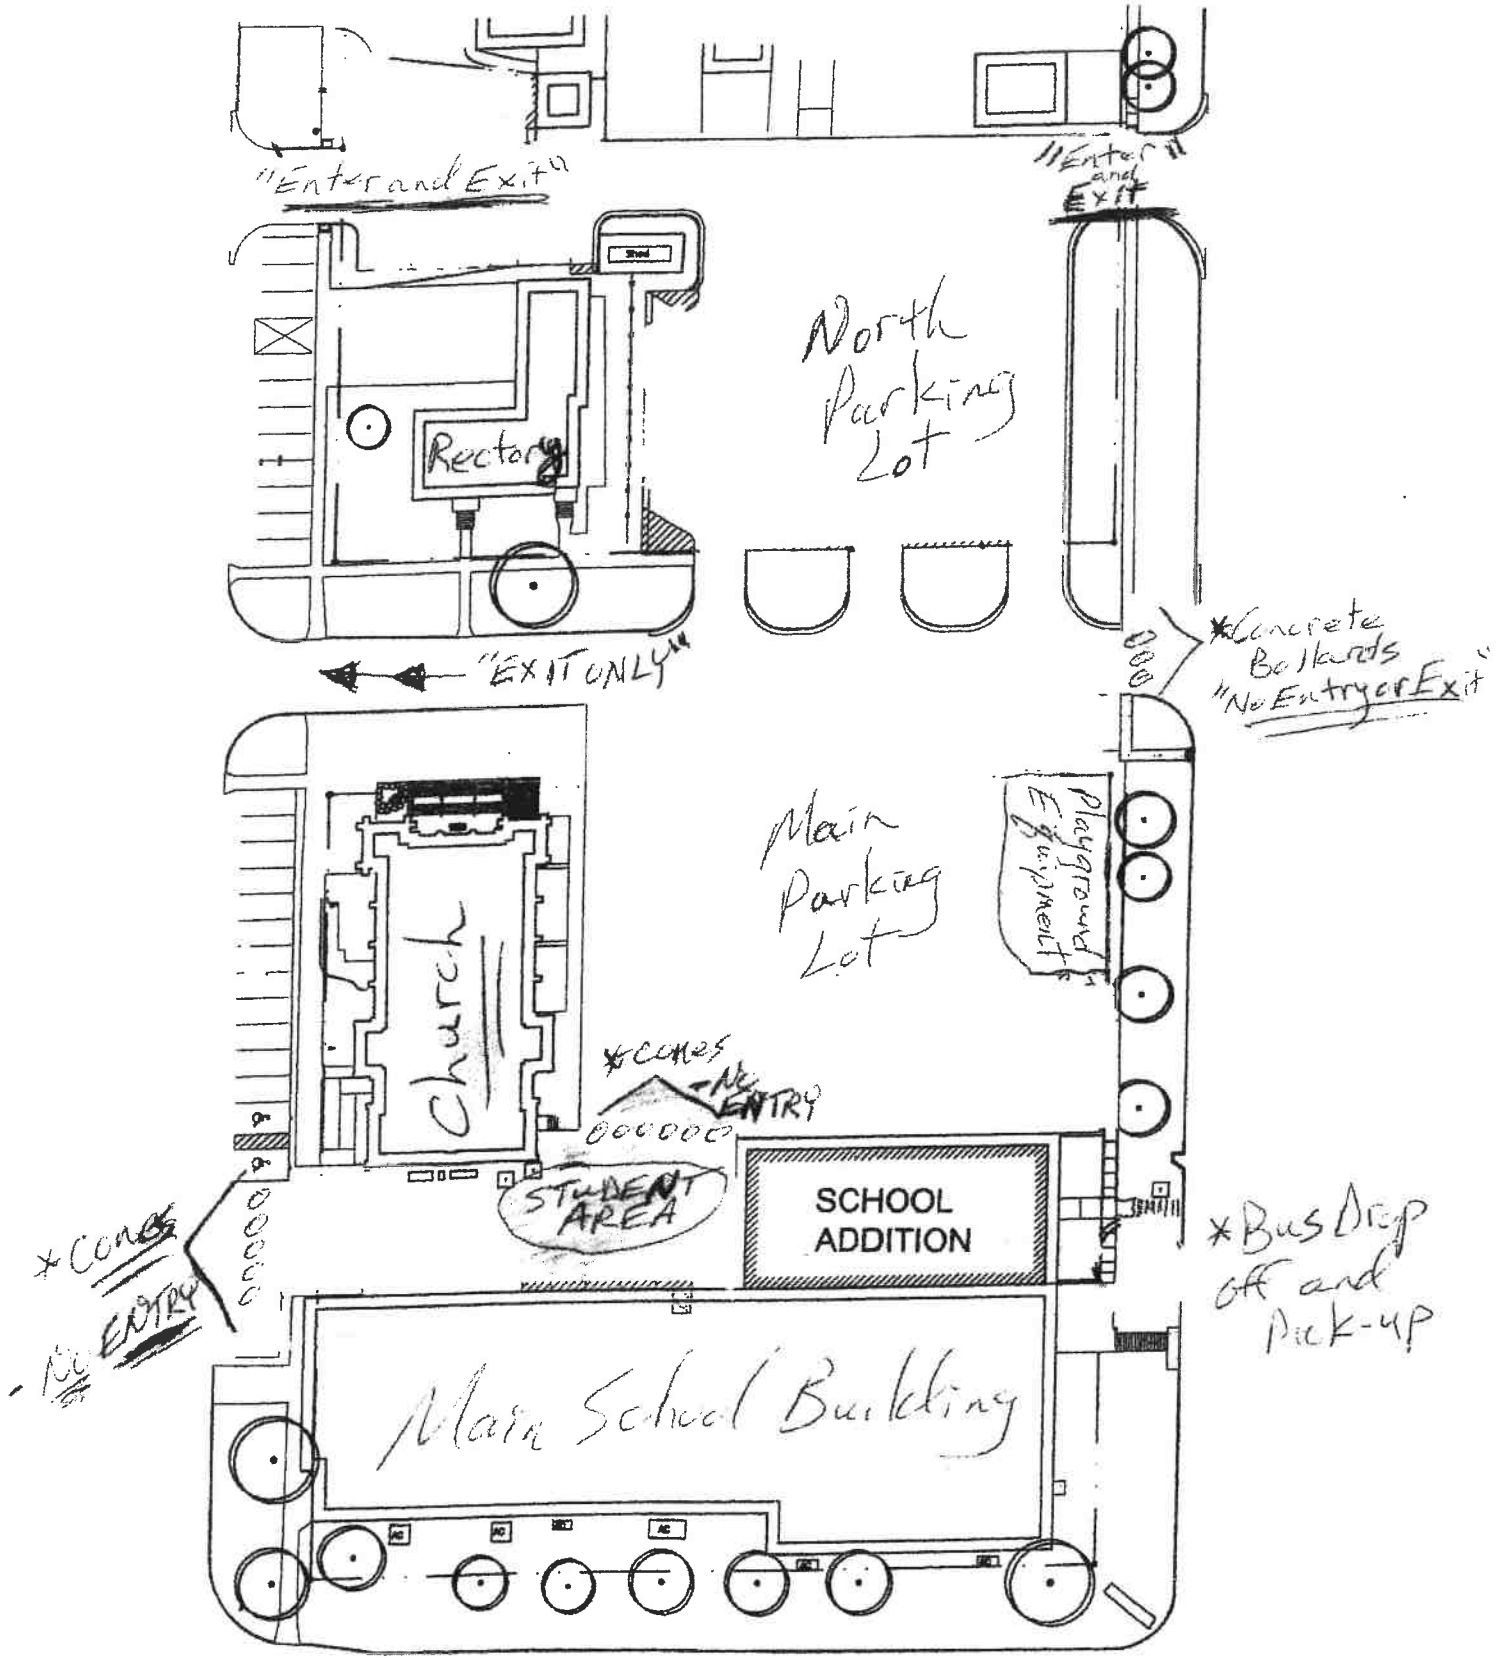 "Enter and Exit"
"Enter"
and
Exit
Shed
North
Parking
Lot
Rectory
"EXIT ONLY"
*Concrete
Bollards
"No Entry or Exit"
Main
Parking
Lot
Playground
Equipment
Church
*Cones
-No
ENTRY
STUDENT
AREA
SCHOOL
ADDITION
*Cones
- No
ENTRY
*Bus Drop
off and
Pick-up
Main School Building
AC
AC
AC
AC
AC